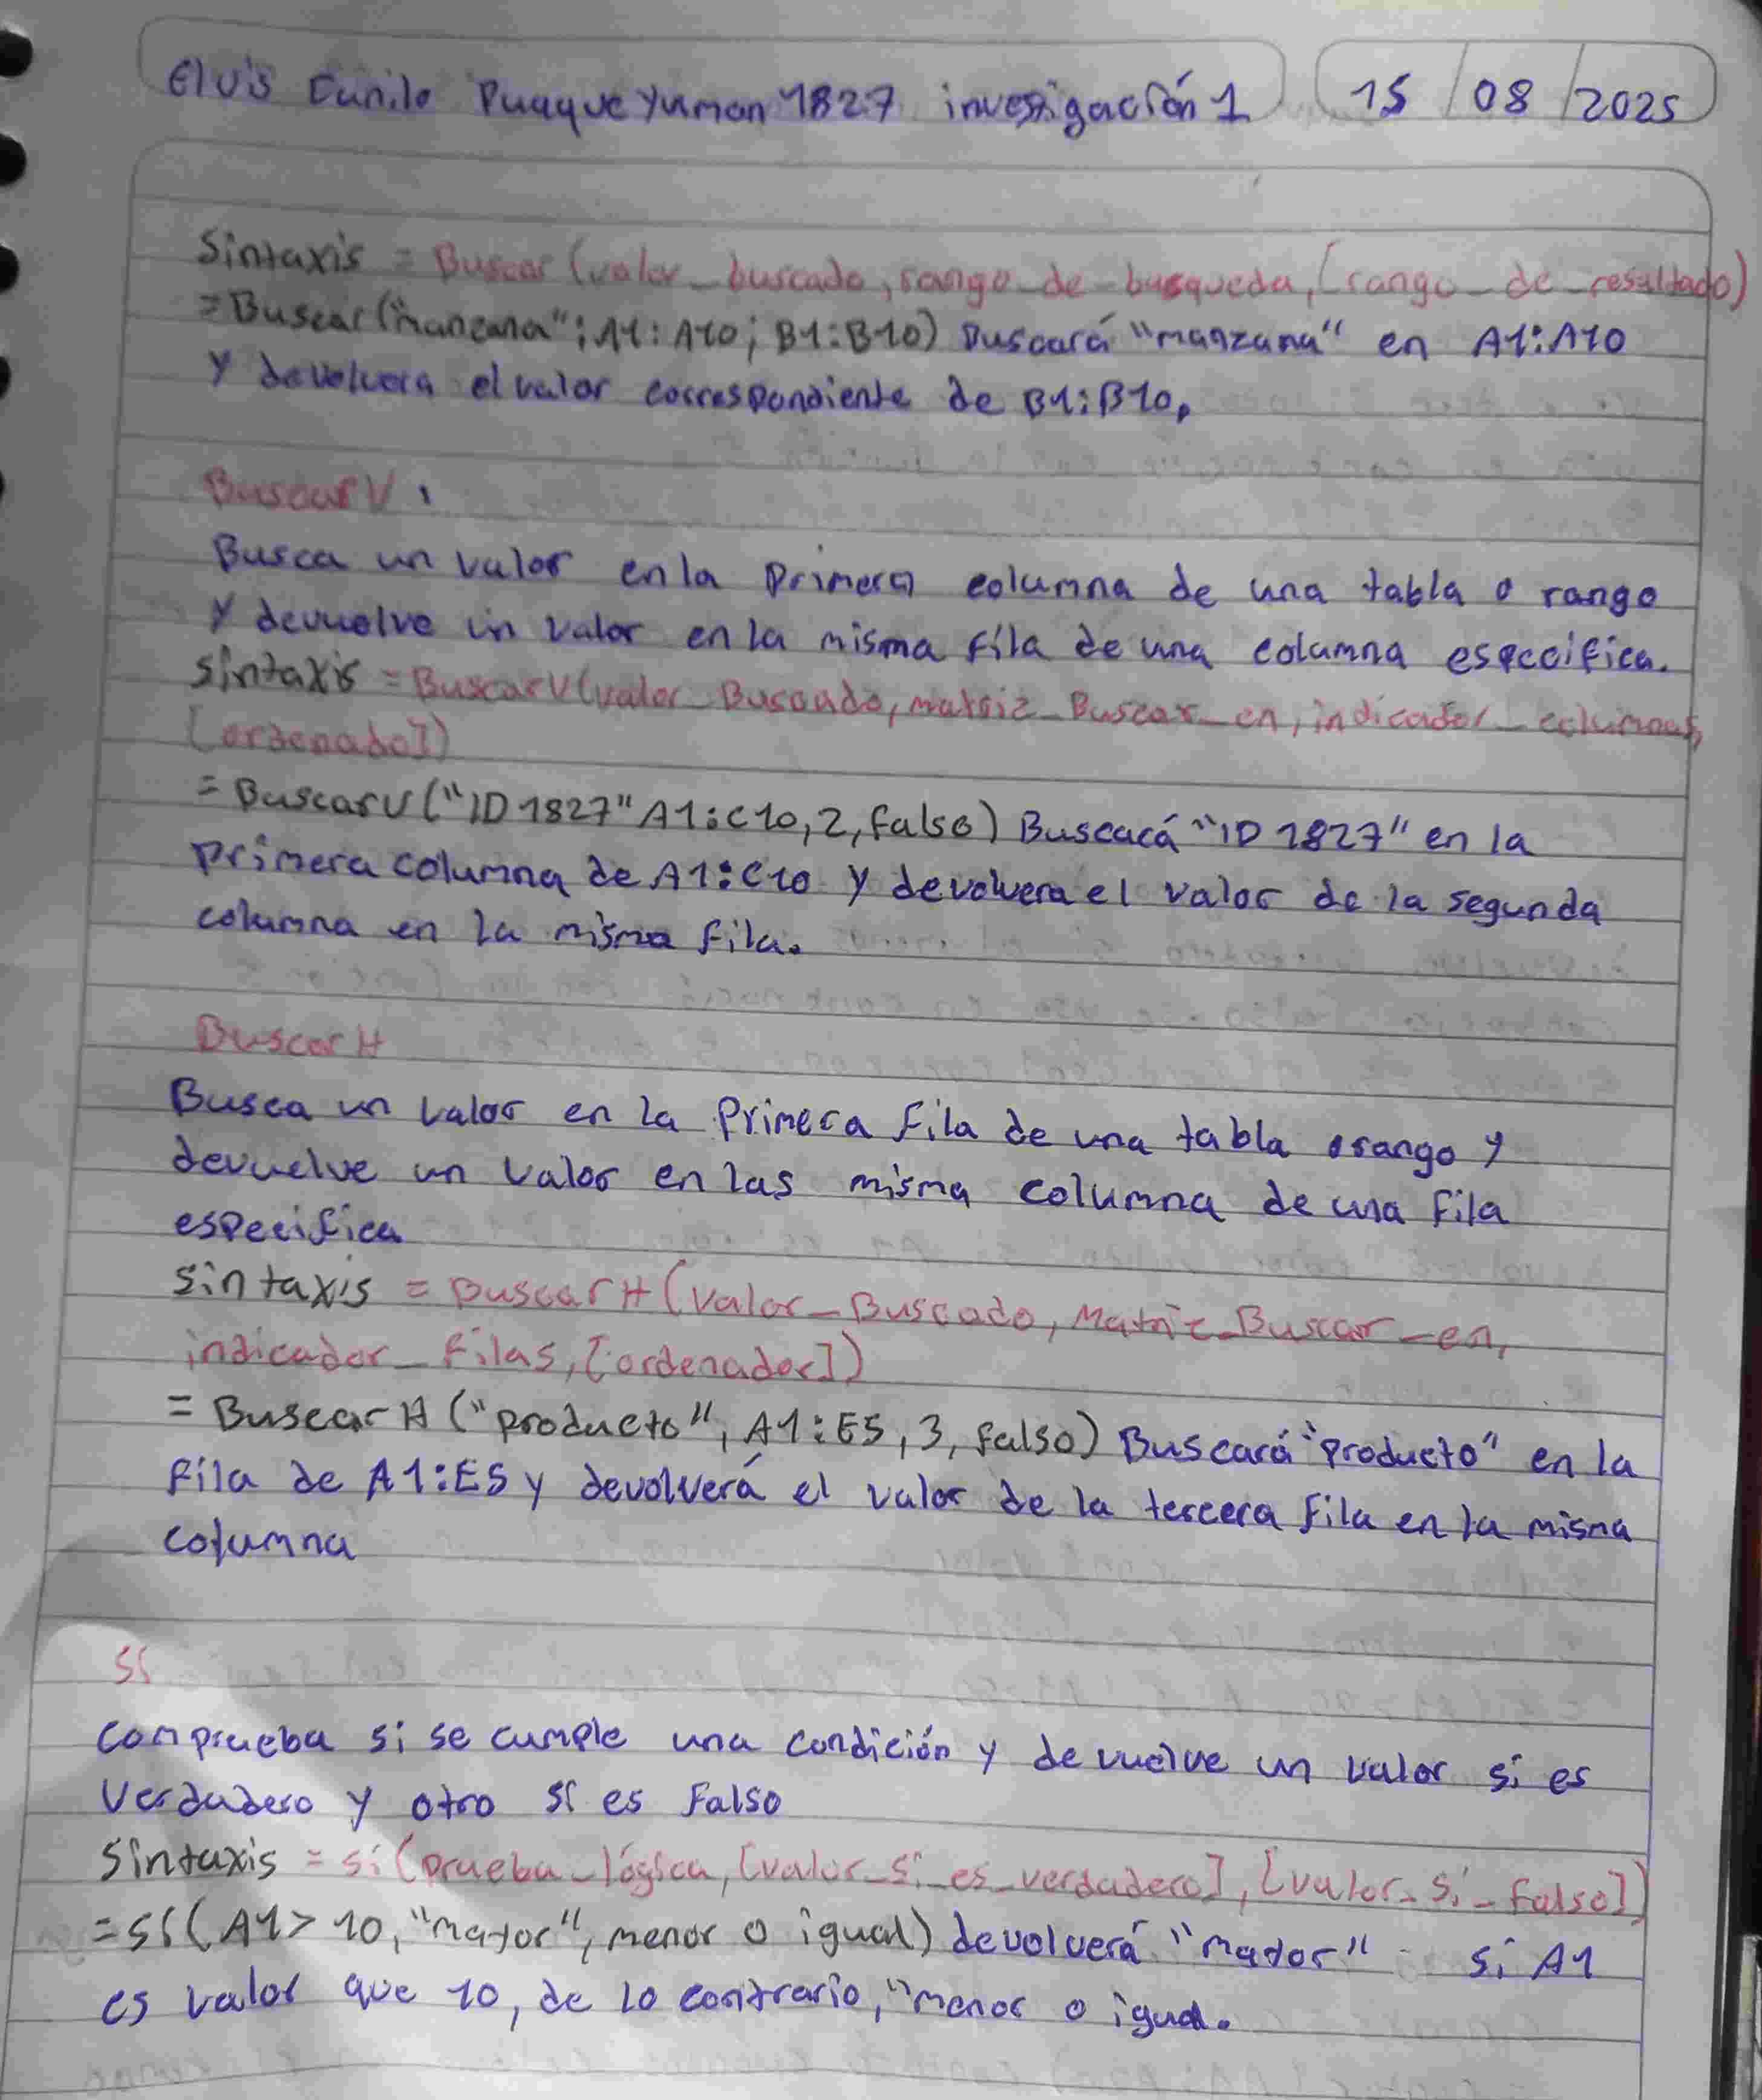 Elvis Danilo Puaque Yuman 1827 investigación 1 15 / 08 / 2025
Sintaxis = Buscar (valor_buscado, rango_de_busqueda, [rango_de_resultado)
=Buscar("manzana"; A1:A10; B1:B10) Buscará "manzana" en A1:A10
y devolvera el valor correspondiente de B1:B10.
BuscarV:
Busca un valor en la primera columna de una tabla o rango
y devuelve un valor en la misma fila de una columna especcifica.
sintaxis =BuscarV(valor_Buscado, matriz_Buscar_en, indicador_columnas,
[ordenado])
= BuscarV ("ID 1827" A1:C10, 2, falso) Buscacá "ID 1827" en la
primera columna de A1:C10 y devolvera el valor de la segunda
columna en la misma fila.
Buscar H
Busca un valor en la primera fila de una tabla o rango y
devuelve un valor en las misma columna de una fila
especifica
sintaxis = BuscarH (Valor_Buscado, Matriz_Buscar_en,
indicador_filas, [ordenador])
= Buscar H ("producto", A1:E5, 3, falso) Buscará "producto" en la
fila de A1:E5 y devolverá el valor de la tercera fila en la misma
columna
Sí
comprueba si se cumple una condición y devuelve un valor si es
Verdadero y otro si es Falso
Sintaxis = si (prueba_lógica, [valor_si_es_verdadero], [valor_si_falso])
=Sí (A1> 10, "mayor", menor o igual) devolverá "mador" si A1
es valor que 10, de lo contrario, "menor o igual.